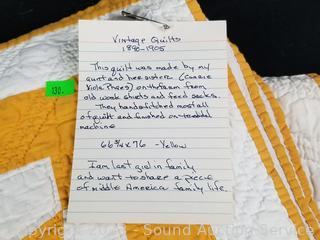 Vintage Quilts
1890-1905
This quilt was made by my
aunt and her sister (Connie
Viola Phares) on the farm from
old work shirts and feed sacks.
They handstitched most all
of quilt and finished on treddal
machine
66 3/4 x 76 - Yellow
I am last girl in family
and want to share a piece
of Middle America family life.
130.
Sound Auction Service